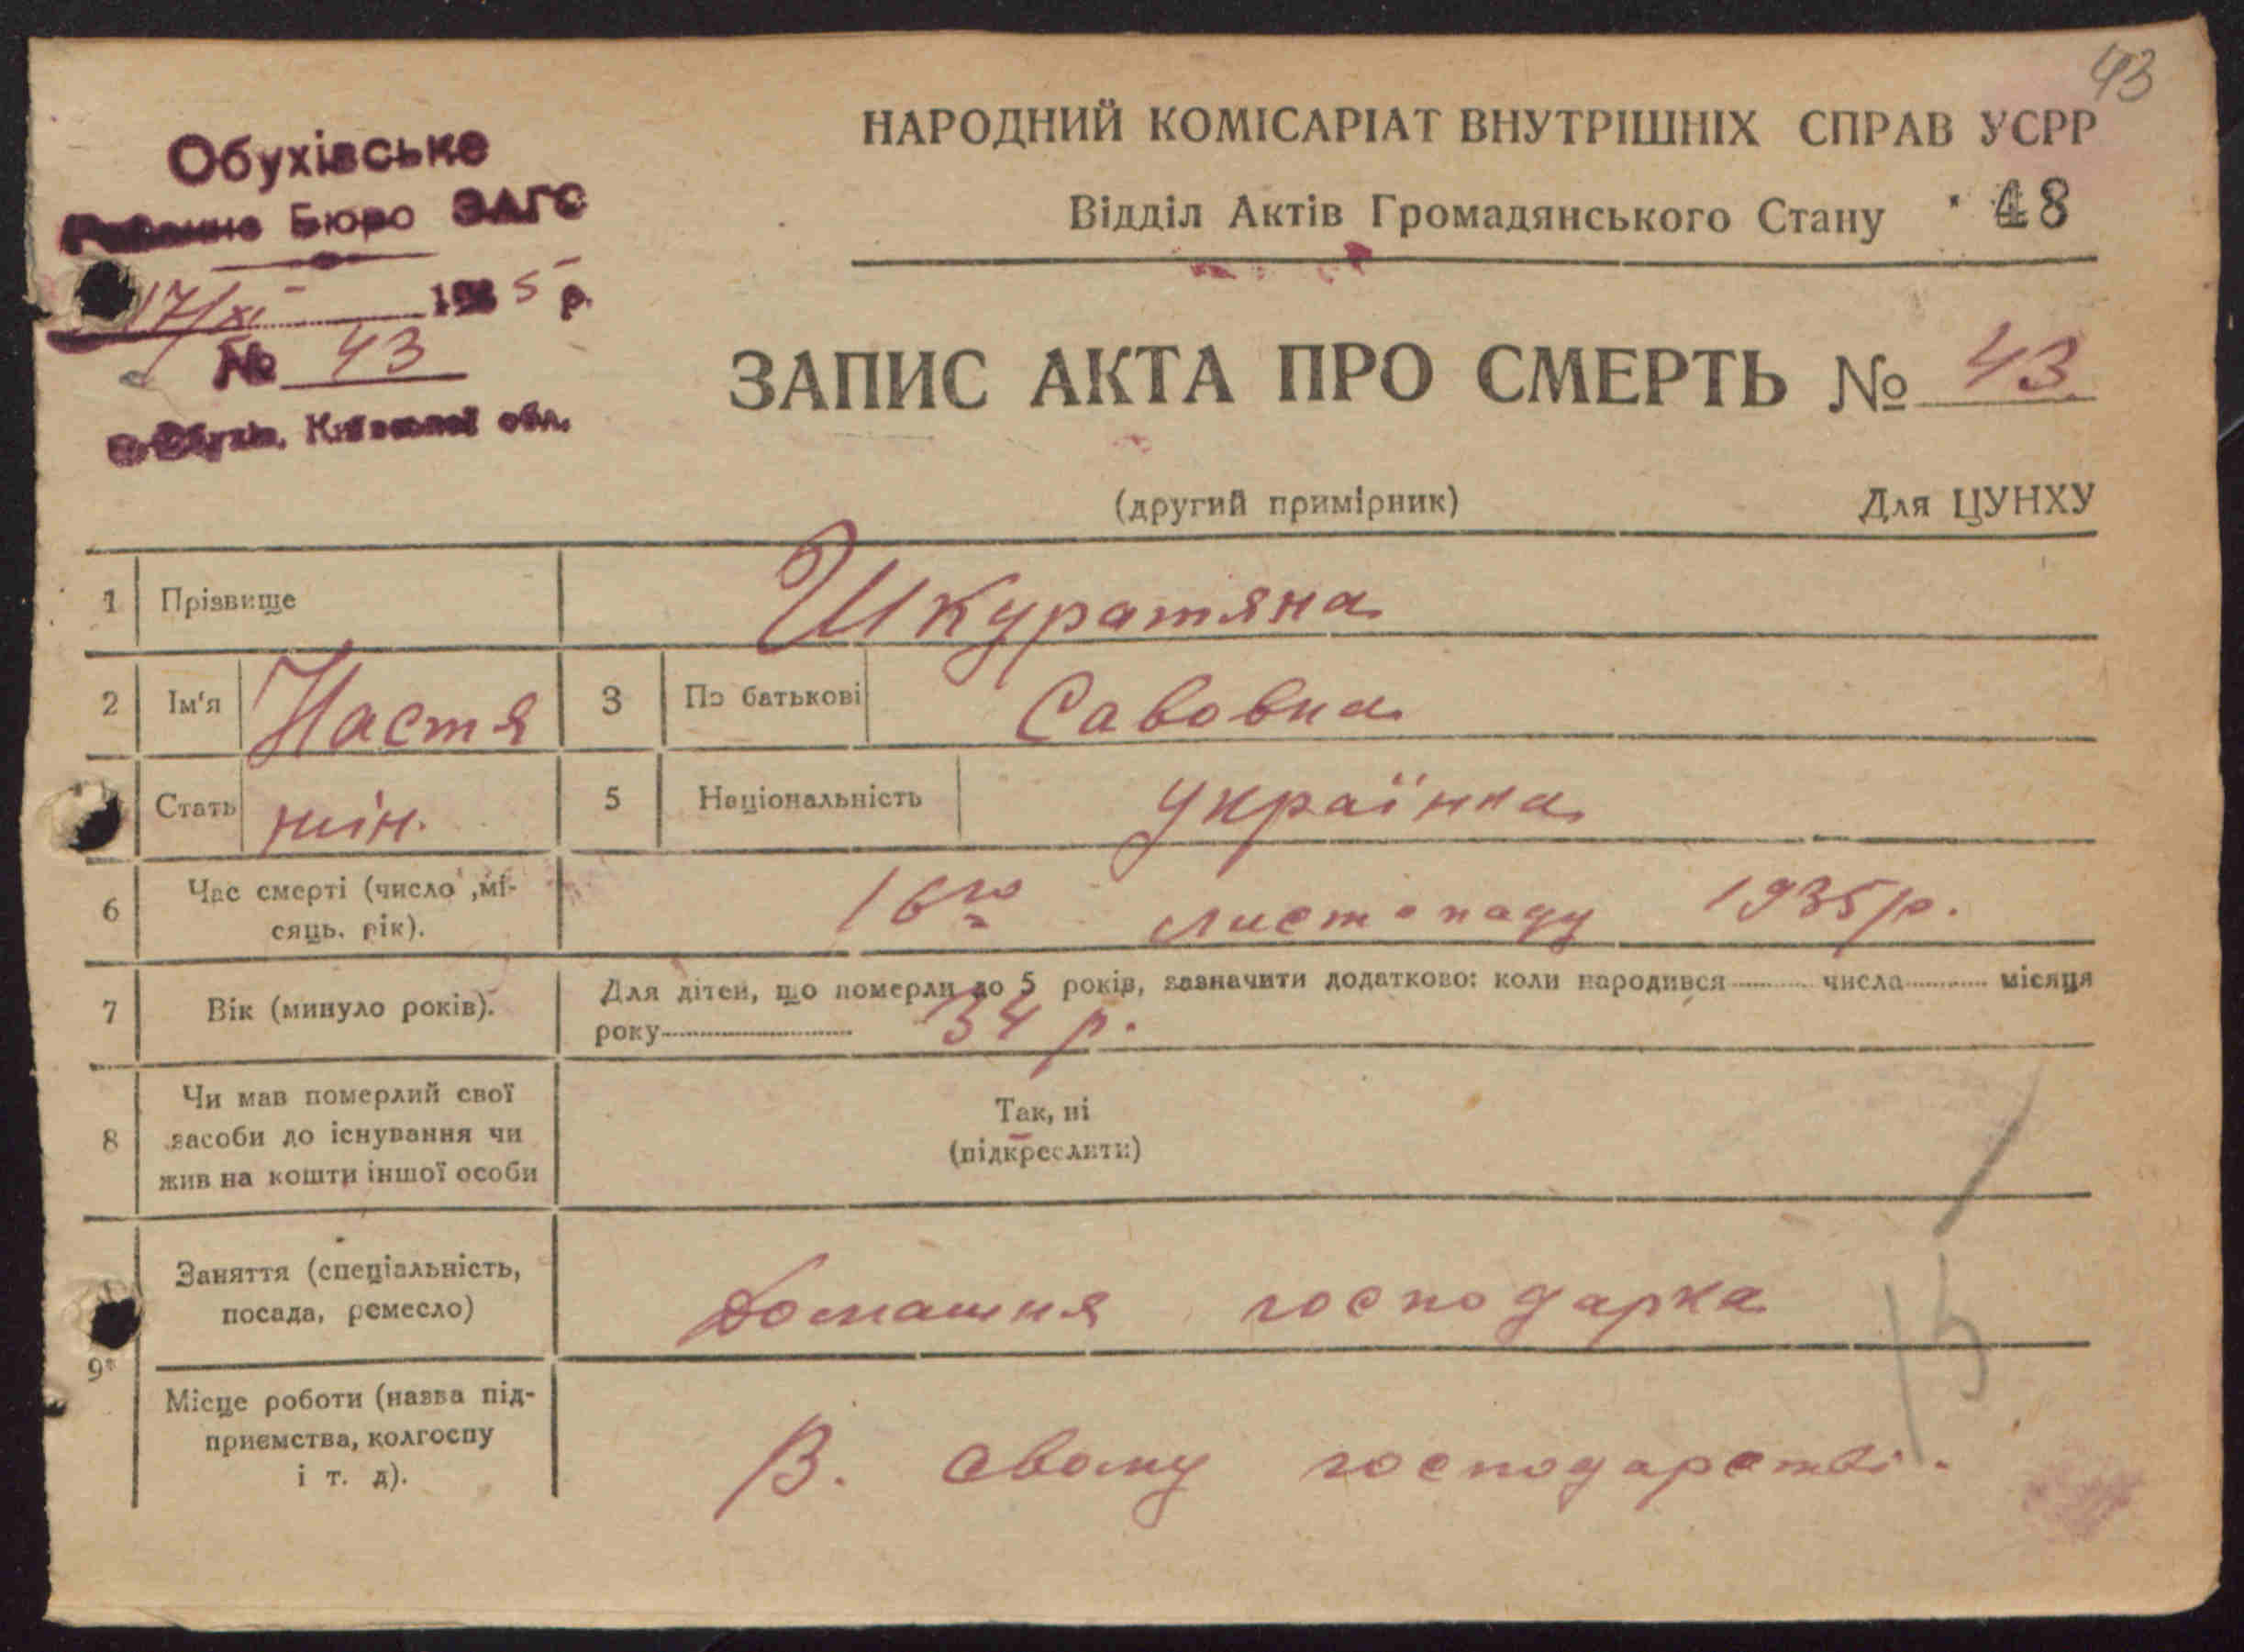 43
Обухівське
Районне Бюро ЗАГС
17/XI 1935 р.
№ 43
Обухів, Київської обл.
НАРОДНИЙ КОМІСАРІАТ ВНУТРІШНІХ СПРАВ УСРР
Відділ Актів Громадянського Стану
48
ЗАПИС АКТА ПРО СМЕРТЬ № 43.
(другий примірник) Для ЦУНХУ
1 Прізвище Шкуратяна
2 Ім'я Настя 3 По батькові Савовна
Стать жін. 5 Національність Українка
6 Час смерті (число ,мі-
сяць. рік). 16го листопаду 1935 р.
7 Вік (минуло років). Для дітей, що померли до 5 років, зазначити додатково: коли народився числа місяця
року 34 р.
8 Чи мав померлий свої
засоби до існування чи
жив на кошти іншої особи
Так, ні
(підкреслити)
9 Заняття (спеціальність,
посада, ремесло) Домашня господарка
15
Місце роботи (назва під-
приємства, колгоспу
і т. д). В. свому господарстві.